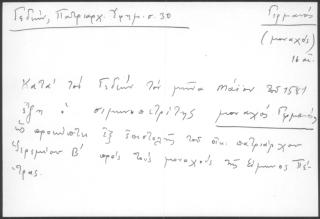 Γεδεών, Πατριαρχ. Ἐφημ. σ. 30
Γερμανός
(μοναχός)
16 αἰ.
Κατά τόν Γεδεών τόν μῆνα Μάϊον τοῦ 1581
ἔζη ὁ σιμωνοπετρίτης μοναχός Γερμανός
ὡς προκύπτει ἐξ ἐπιστολῆς τοῦ οἰκ. πατριάρχου
Ἱερεμίου Β' πρός τούς μοναχούς τῆς Σίμωνος Πέ-
τρας.